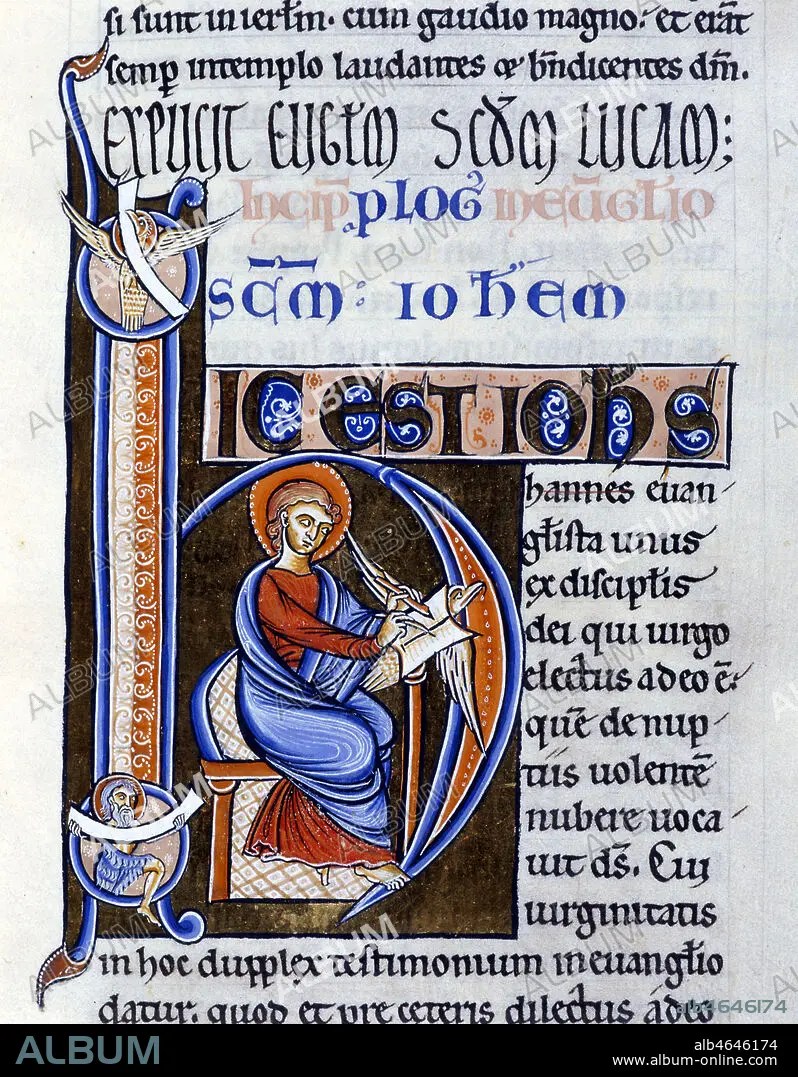 si sunt in ierl̄m. cum gaudio magno. et erāt
semp̱ in templo laudantes & bn̄dicentes dm̄.
EXPLICIT EUG̅L̅M SCD̅M LUCAM;
Incip̄ PLOG̅ IN EUG̅LIO
SCD̅M : IOH̅EM
HIC EST IOH̅S
hannes euan
gl̄ista unus
ex discipl̄is
dei qui uirgo
electus a deo ē.
quē de nup
tiis uolentē
nubere uoca
uit ds̄. Cui
uirginitatis
in hoc dupplex testimonium in euangl̄io
datur. quod et pre ceteris dilectus a deo
ALBUM
alb4646174
www.album-online.com